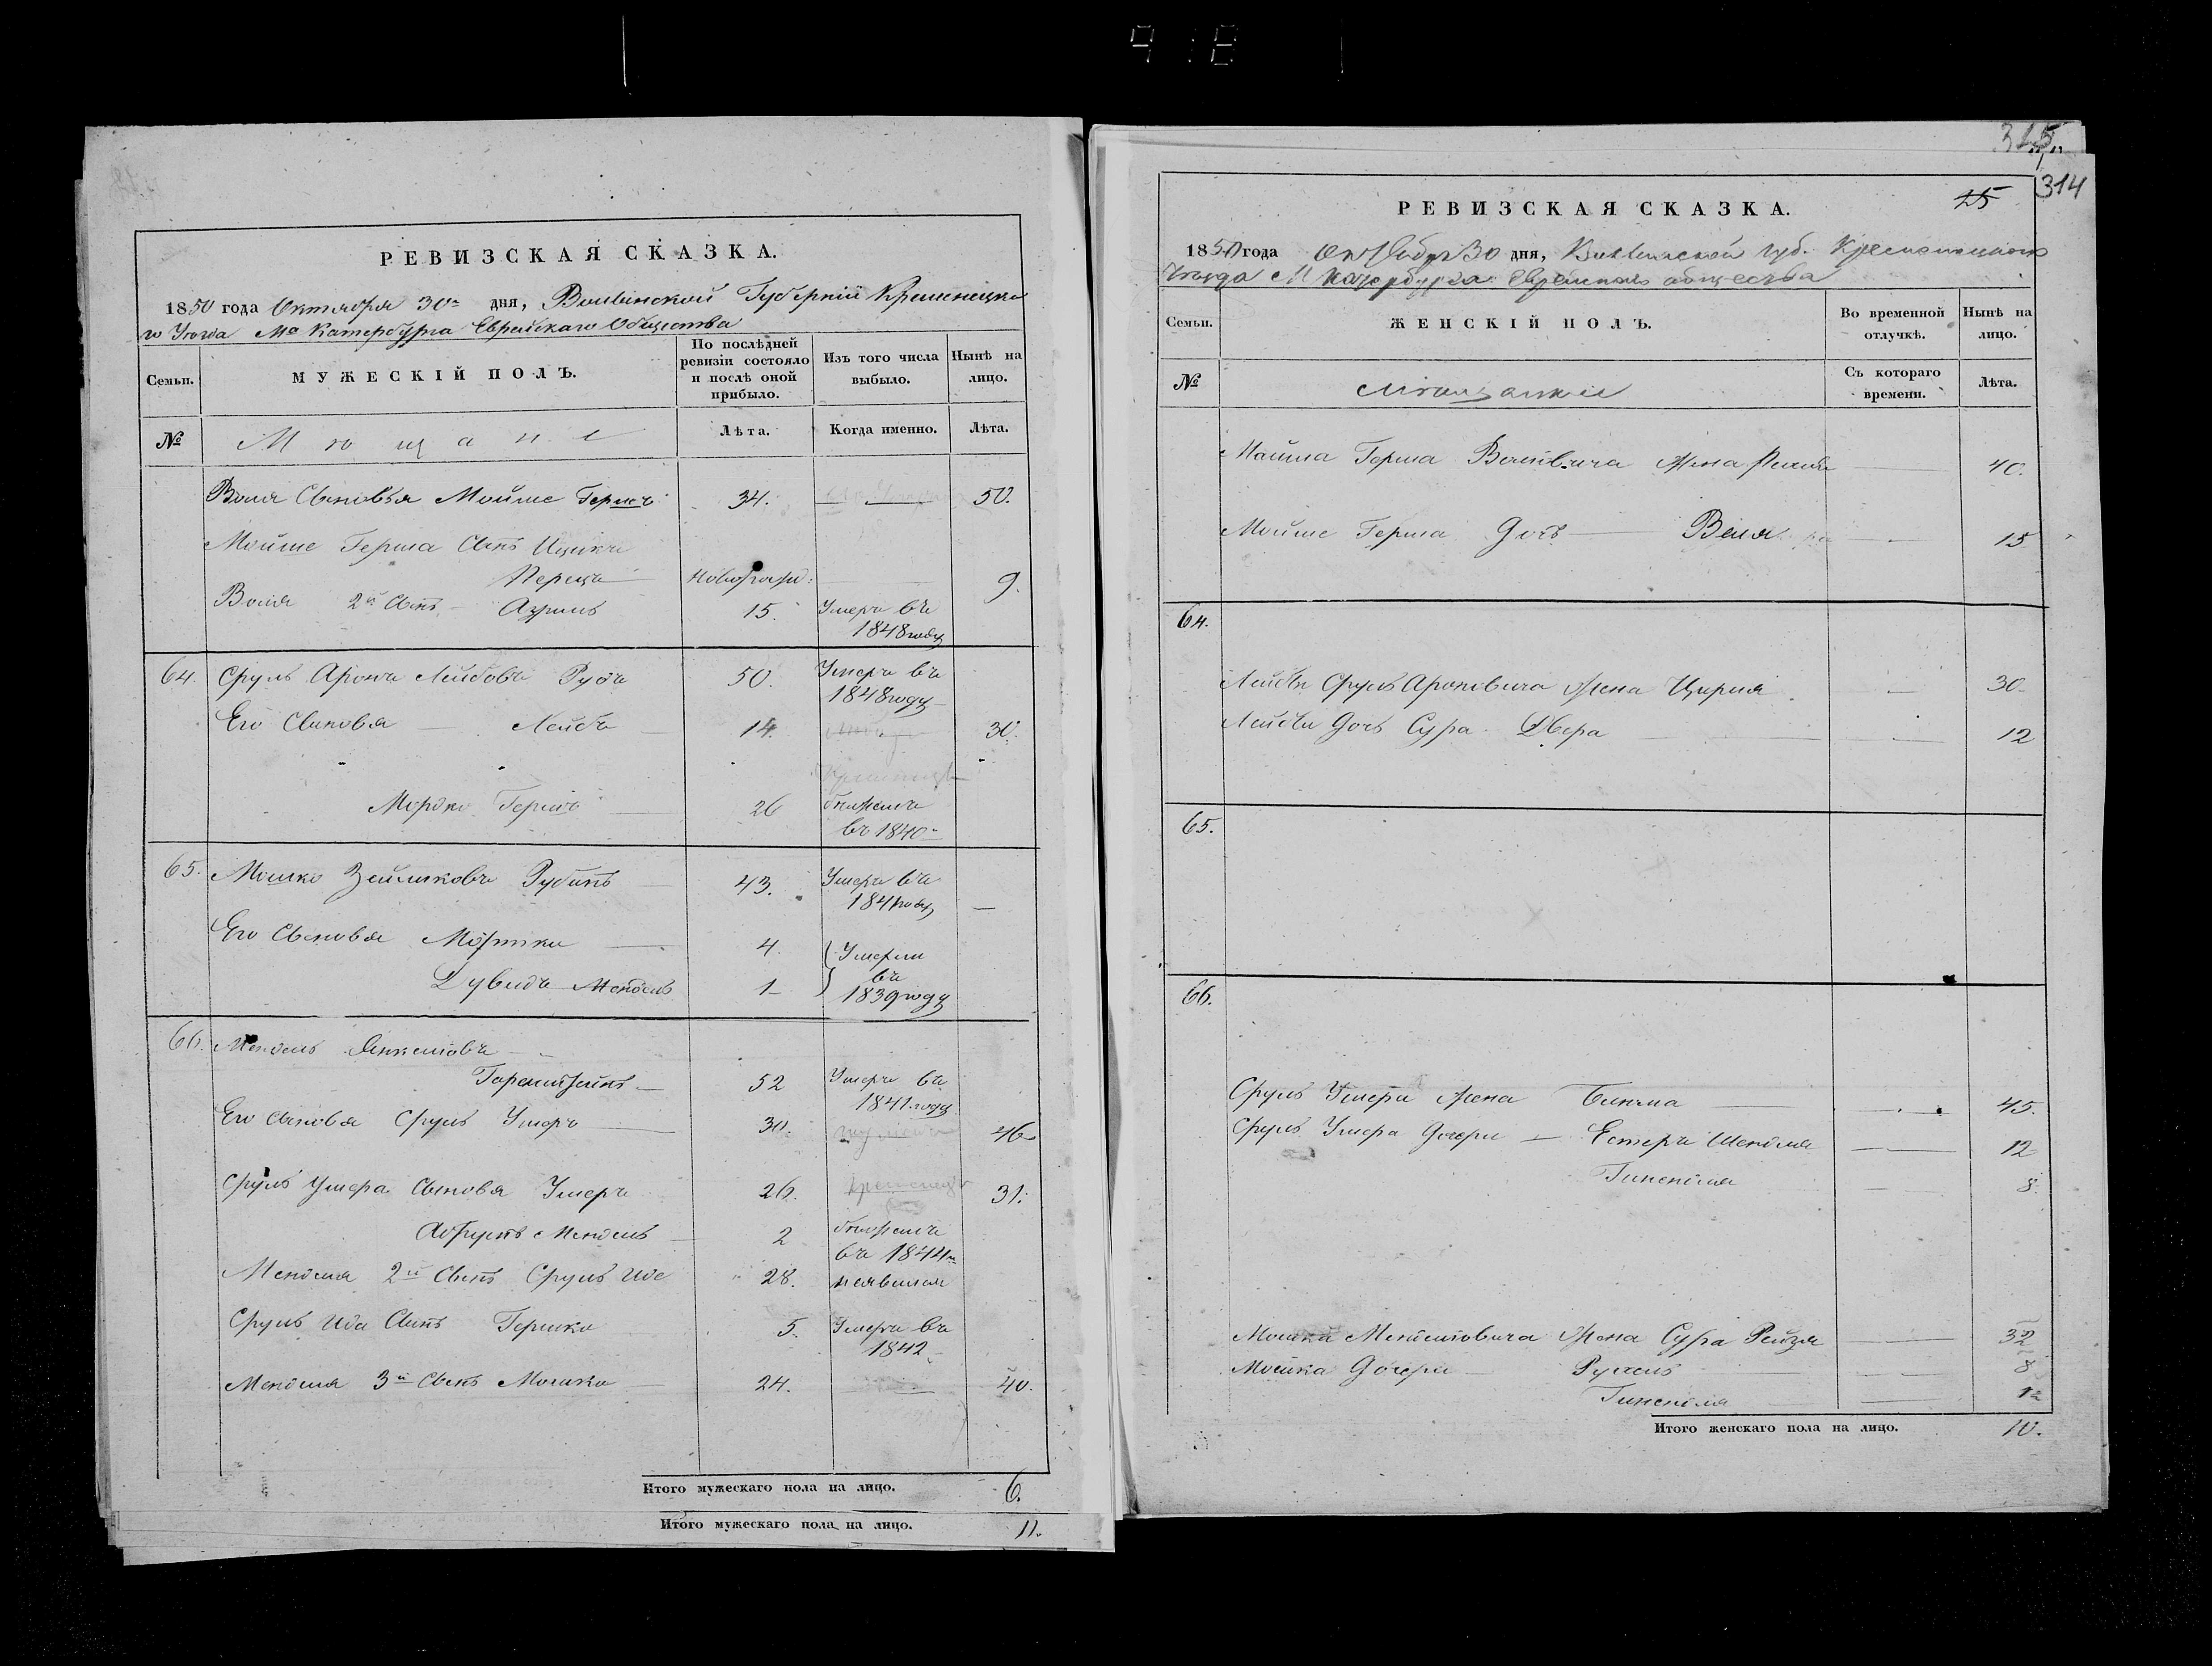 РЕВИЗСКАЯ СКАЗКА.
1850 года Октября 30 дня, Волынской Губерніи Кременецка
го Уезда Мᵃ Катербурга Еврейскаго Общества
Семьи.
МУЖЕСКІЙ ПОЛЪ.
По послѣдней ревизіи состояло и послѣ оной прибыло.
Изъ того числа выбыло.
Нынѣ на лицо.
№
Мещане
Лѣта.
Когда именно.
Лѣта.
Воля Сыновья Мойше Гершъ 34. 50.
Мойше Герша Сынъ Ицикъ
Перецъ новорожд: 9.
Воля 2й Сынъ Азриль 15. Умеръ въ
1848 году
64. Сруль Аронъ Лейбовъ Рубъ 50. Умеръ въ
1848 году
Его Сыновья Лейбъ 14. 30.
Мордко Гершъ 26 бѣжалъ
въ 1840
65. Мошко Зейликовъ Рубинъ 43. Умеръ въ
1841 году —
Его Сыновья 4. Умерли
въ
Дувидъ Мендель 1 1839 году
66. Мендель Янкелювъ
52 Умеръ въ
1841 году
Его Сыновья Сруль Умеръ 30. 46
Сруль Умера Сыновья Умеръ 26. 31.
Абрумъ Мендель 2 бѣжалъ
въ 1844
Менделя 2й Сынъ Сруль Иде 28. неявился
Сруль Ида Сынъ Гершко 5. Умеръ въ
1842
Менделя 3й Сынъ Мошко 24. 40.
Итого мужескаго пола на лицо. 6.
Итого мужескаго пола на лицо. 11.
315
314
РЕВИЗСКАЯ СКАЗКА.
25
1850 года Октября 30 дня, Волынской губ. Кременецкаго
Уезда М Катербурга Еврейскаго общества
Семьи.
ЖЕНСКІЙ ПОЛЪ.
Во временной отлучкѣ.
Нынѣ на лицо.
№
Мещанки
Съ котораго времени.
Лѣта.
Мойша Герша Вольвича Жена 40.
Мойше Герша Дочь Вея 15
64.
Лейбы Сруль Ароновича Жена Цирля 30
Лейбы Дочь Сура Двера 12
65.
66.
Сруль Умера Жена Бинема 45.
Сруль Умера Дочери — Естеръ Шендля 12
Гинендля 8.
Мошка Менделювича Жена Сура Рейзя 32
Мошка Дочери Рухель 8
Гинендля 12
Итого женскаго пола на лицо. 10.